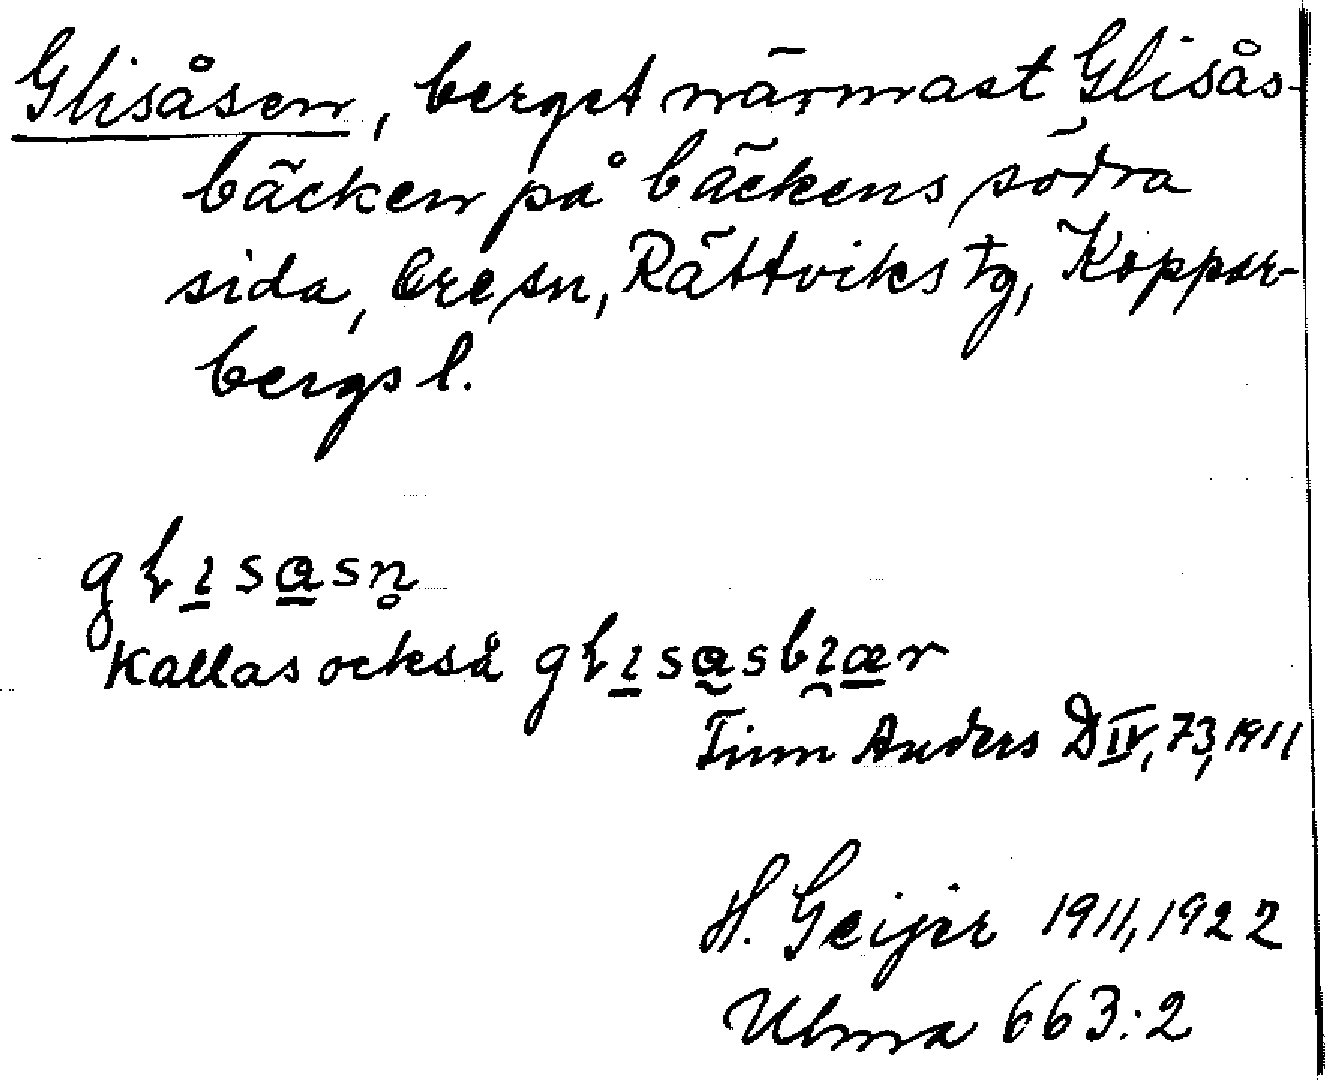 Glisåsen, berget närmast Glisås-
bäcken på bäckens södra
sida, Ore sn, Rättviks tg, Koppar-
bergs l.
Kallas också
Finn Anders D IV, 73, 1911
H. Geijer 1911, 1922
Ulma 663:2